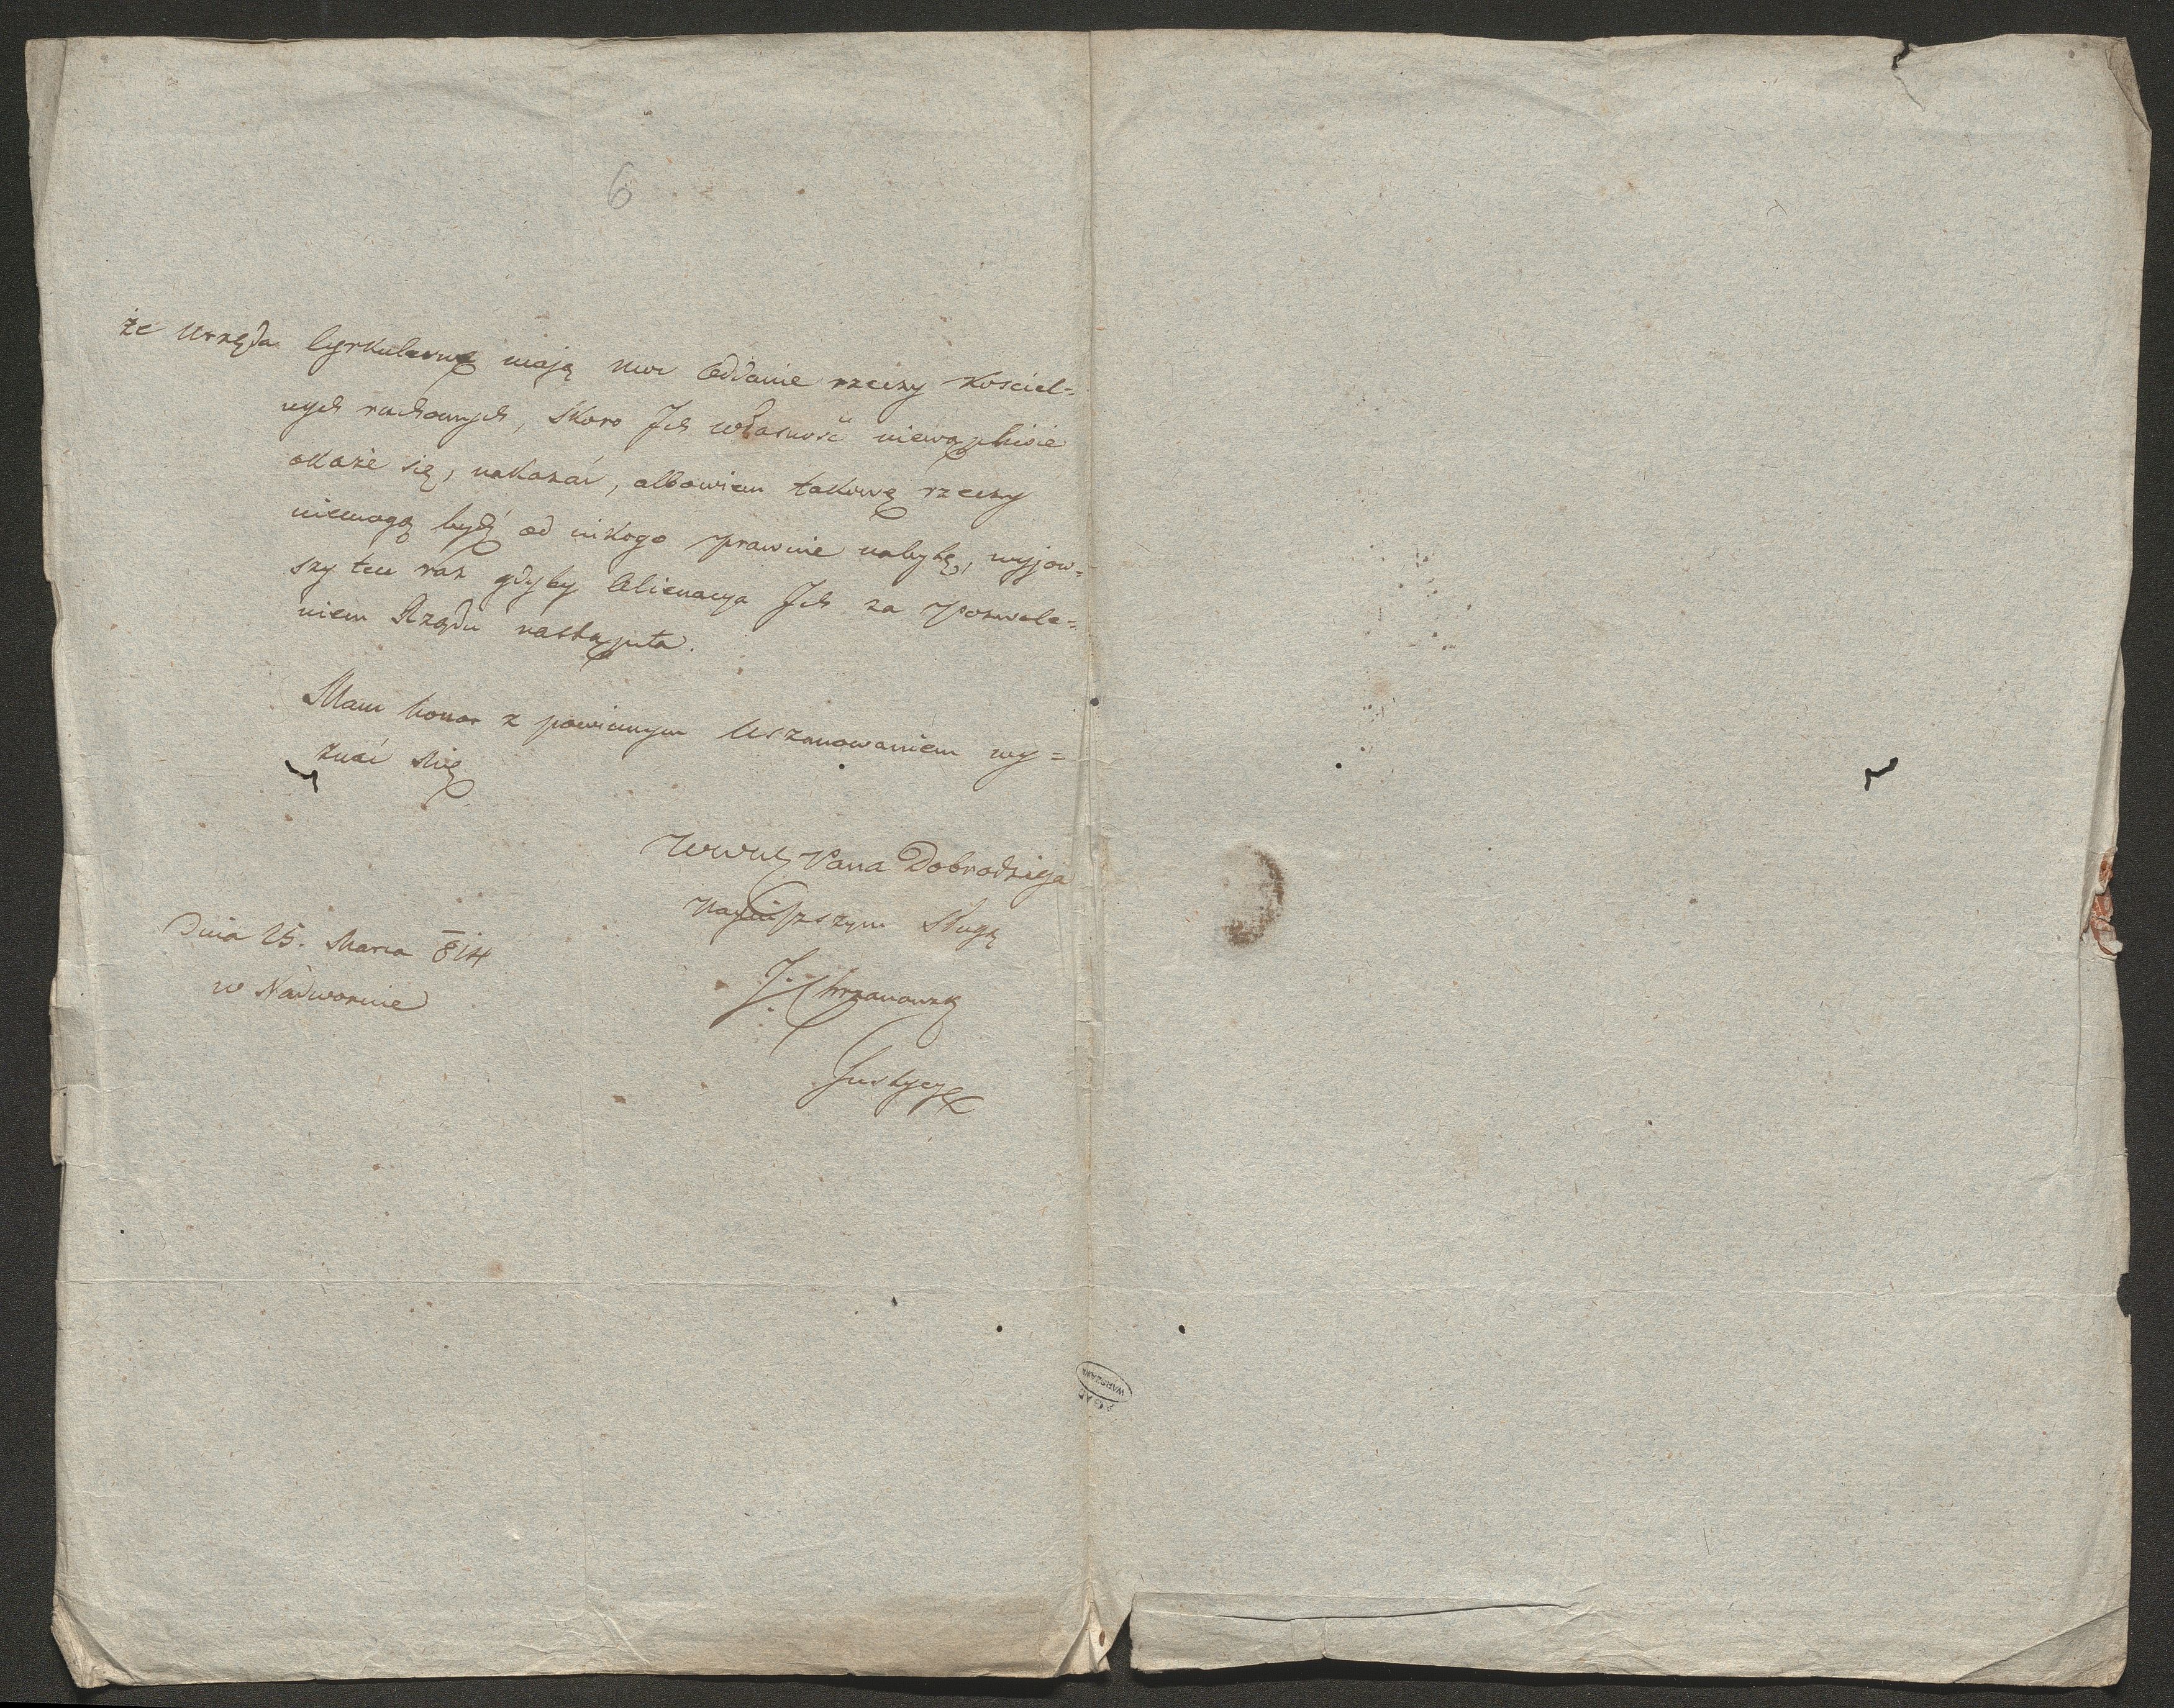 6
że Urzęda Cyrkularne mają moc Oddanie rzeczy Kosciel=
nych ruchomych, skoro Jch własność niewątpliwie
okaże się, nakazać, albowiem takowe rzeczy
niemogą bydź od nikogo prawnie nabyte, wyjow=
szy ten raz gdyby Alienacya Jch za Pozwole=
niem Rządu nastąpiła.
Mam honor z powinnym Uszanowaniem wy=
znać się
Pana Dobrodzieja
Nayniższym Sługą
J. Chrzanowski
Justycy
Dnia 25. Marca 814
w Nadwornie
AGAD
WARSZAWA